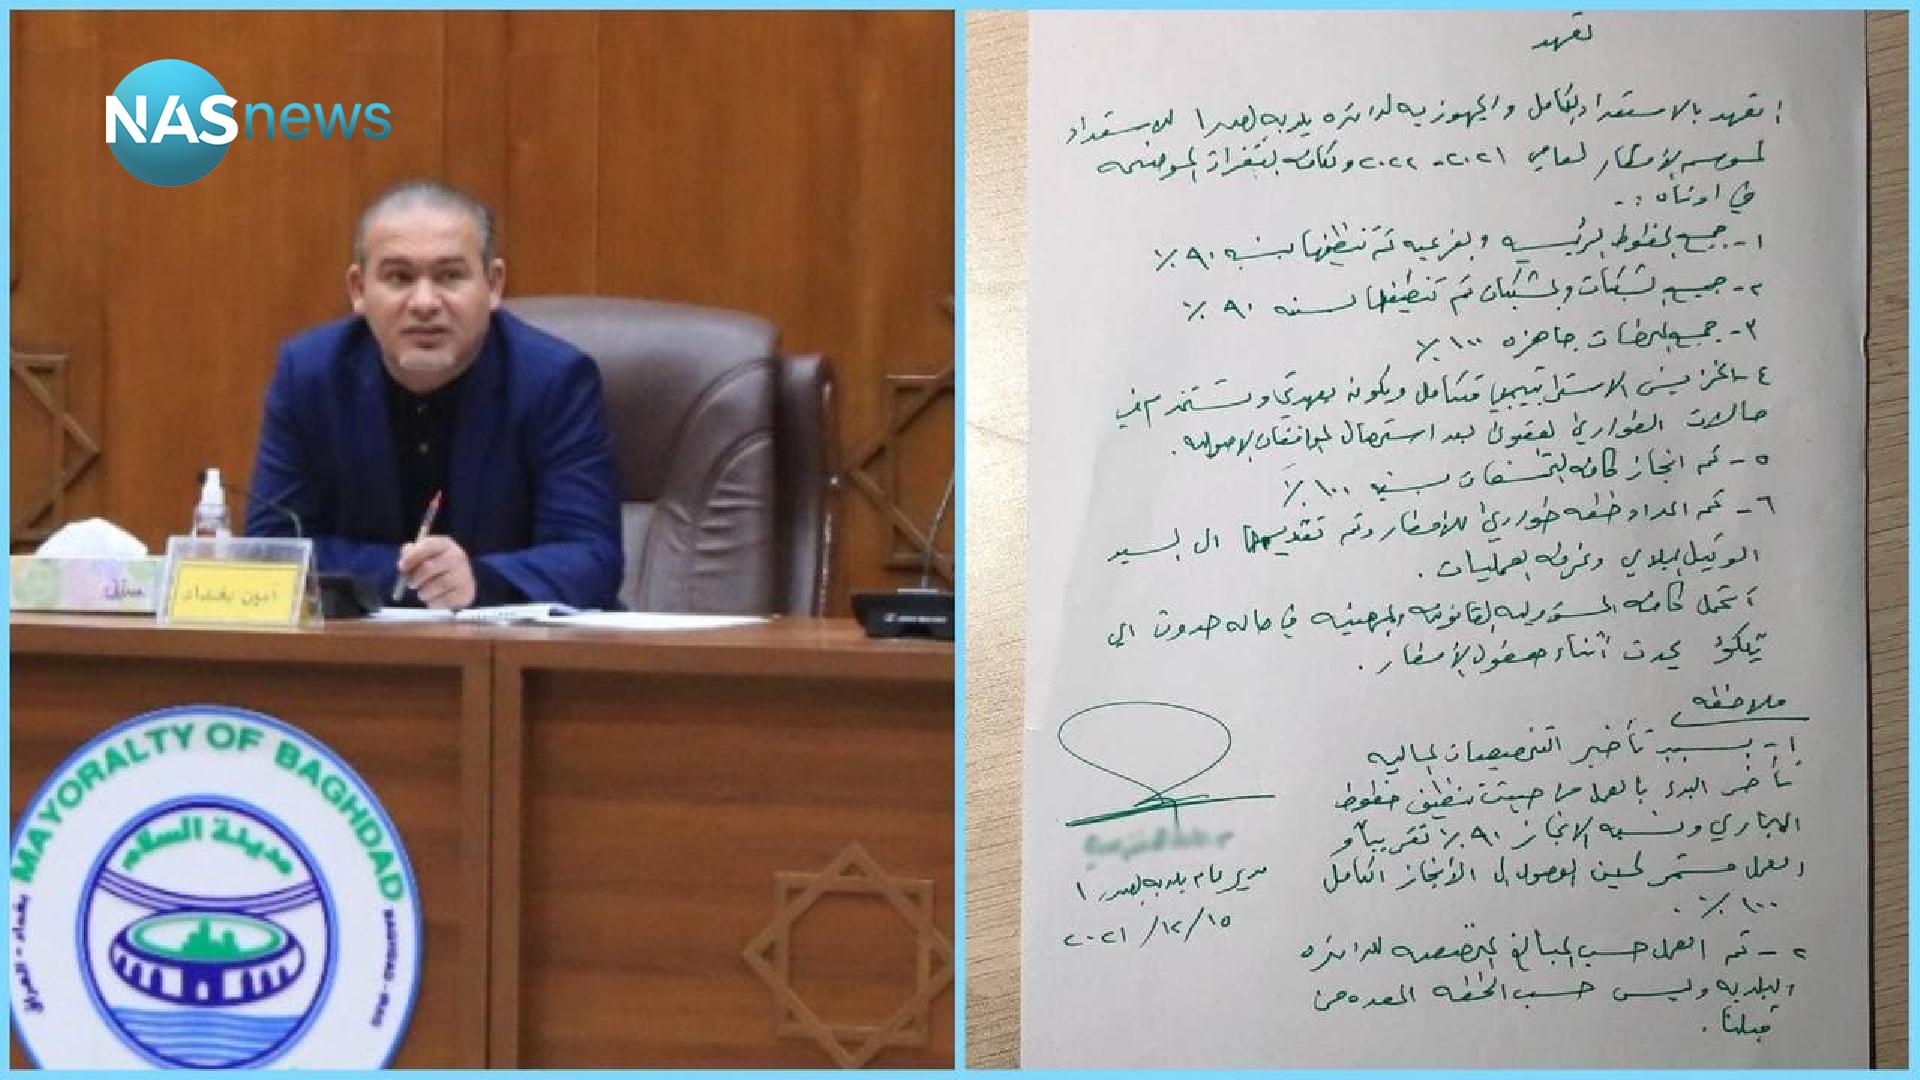 NASnews
سنابل
أمين بغداد
MAYORALTY OF BAGHDAD
مدينة السلام
بغداد - العراق
BAGHDAD - IRAQ
تعهد
اتعهد بالاستعداد الكامل والجهوزيه لدائره بلديه الصدر ١ للاستعداد
لموسم الامطار لعامي ٢٠٢١ - ٢٠٢٢ ولكافه الفقرات الموضحه
في ادناه :-
١- جميع الخطوط الرئيسيه والفرعيه تم تنظيفها بنسبه ٩٠ ٪
٢- جميع الشبكات والمشبكات تم تنظيفها بنسبه ٩٠ ٪
٣- جميع المحطات جاهزه ١٠٠ ٪
٤- الخزين الاستراتيجي متكامل ويكون بعهدتي ويستخدم في
حالات الطوارئ القصوى بعد استحصال الموافقات الاصوليه .
٥- تم انجاز كافه التخسفات بنسبه ١٠٠ ٪
٦- تم اعداد خطه طوارئ للامطار وتم تقديمها الى السيد
الوكيل البلدي وغرفه العمليات .
أتحمل كافه المسؤوليه القانونيه والمهنيه في حاله حدوث اي
تلكؤ يحدث أثناء هطول الأمطار .
ملاحظه
١- بسبب تأخير التخصيصات الماليه
تأخر البدء بالعمل من حيث تنظيف خطوط
المجاري ونسبه الانجاز ٩٠ ٪ تقريباً و
العمل مستمر لحين الوصول الى الأنجاز الكامل
١٠٠ ٪ .
٢- تم العمل حسب المبالغ المخصصه للدائره
البلديه وليس حسب الخطه المعده من
قبلنا .
مدير عام بلديه الصدر ١
٢٠٢١ / ١٢ / ١٥